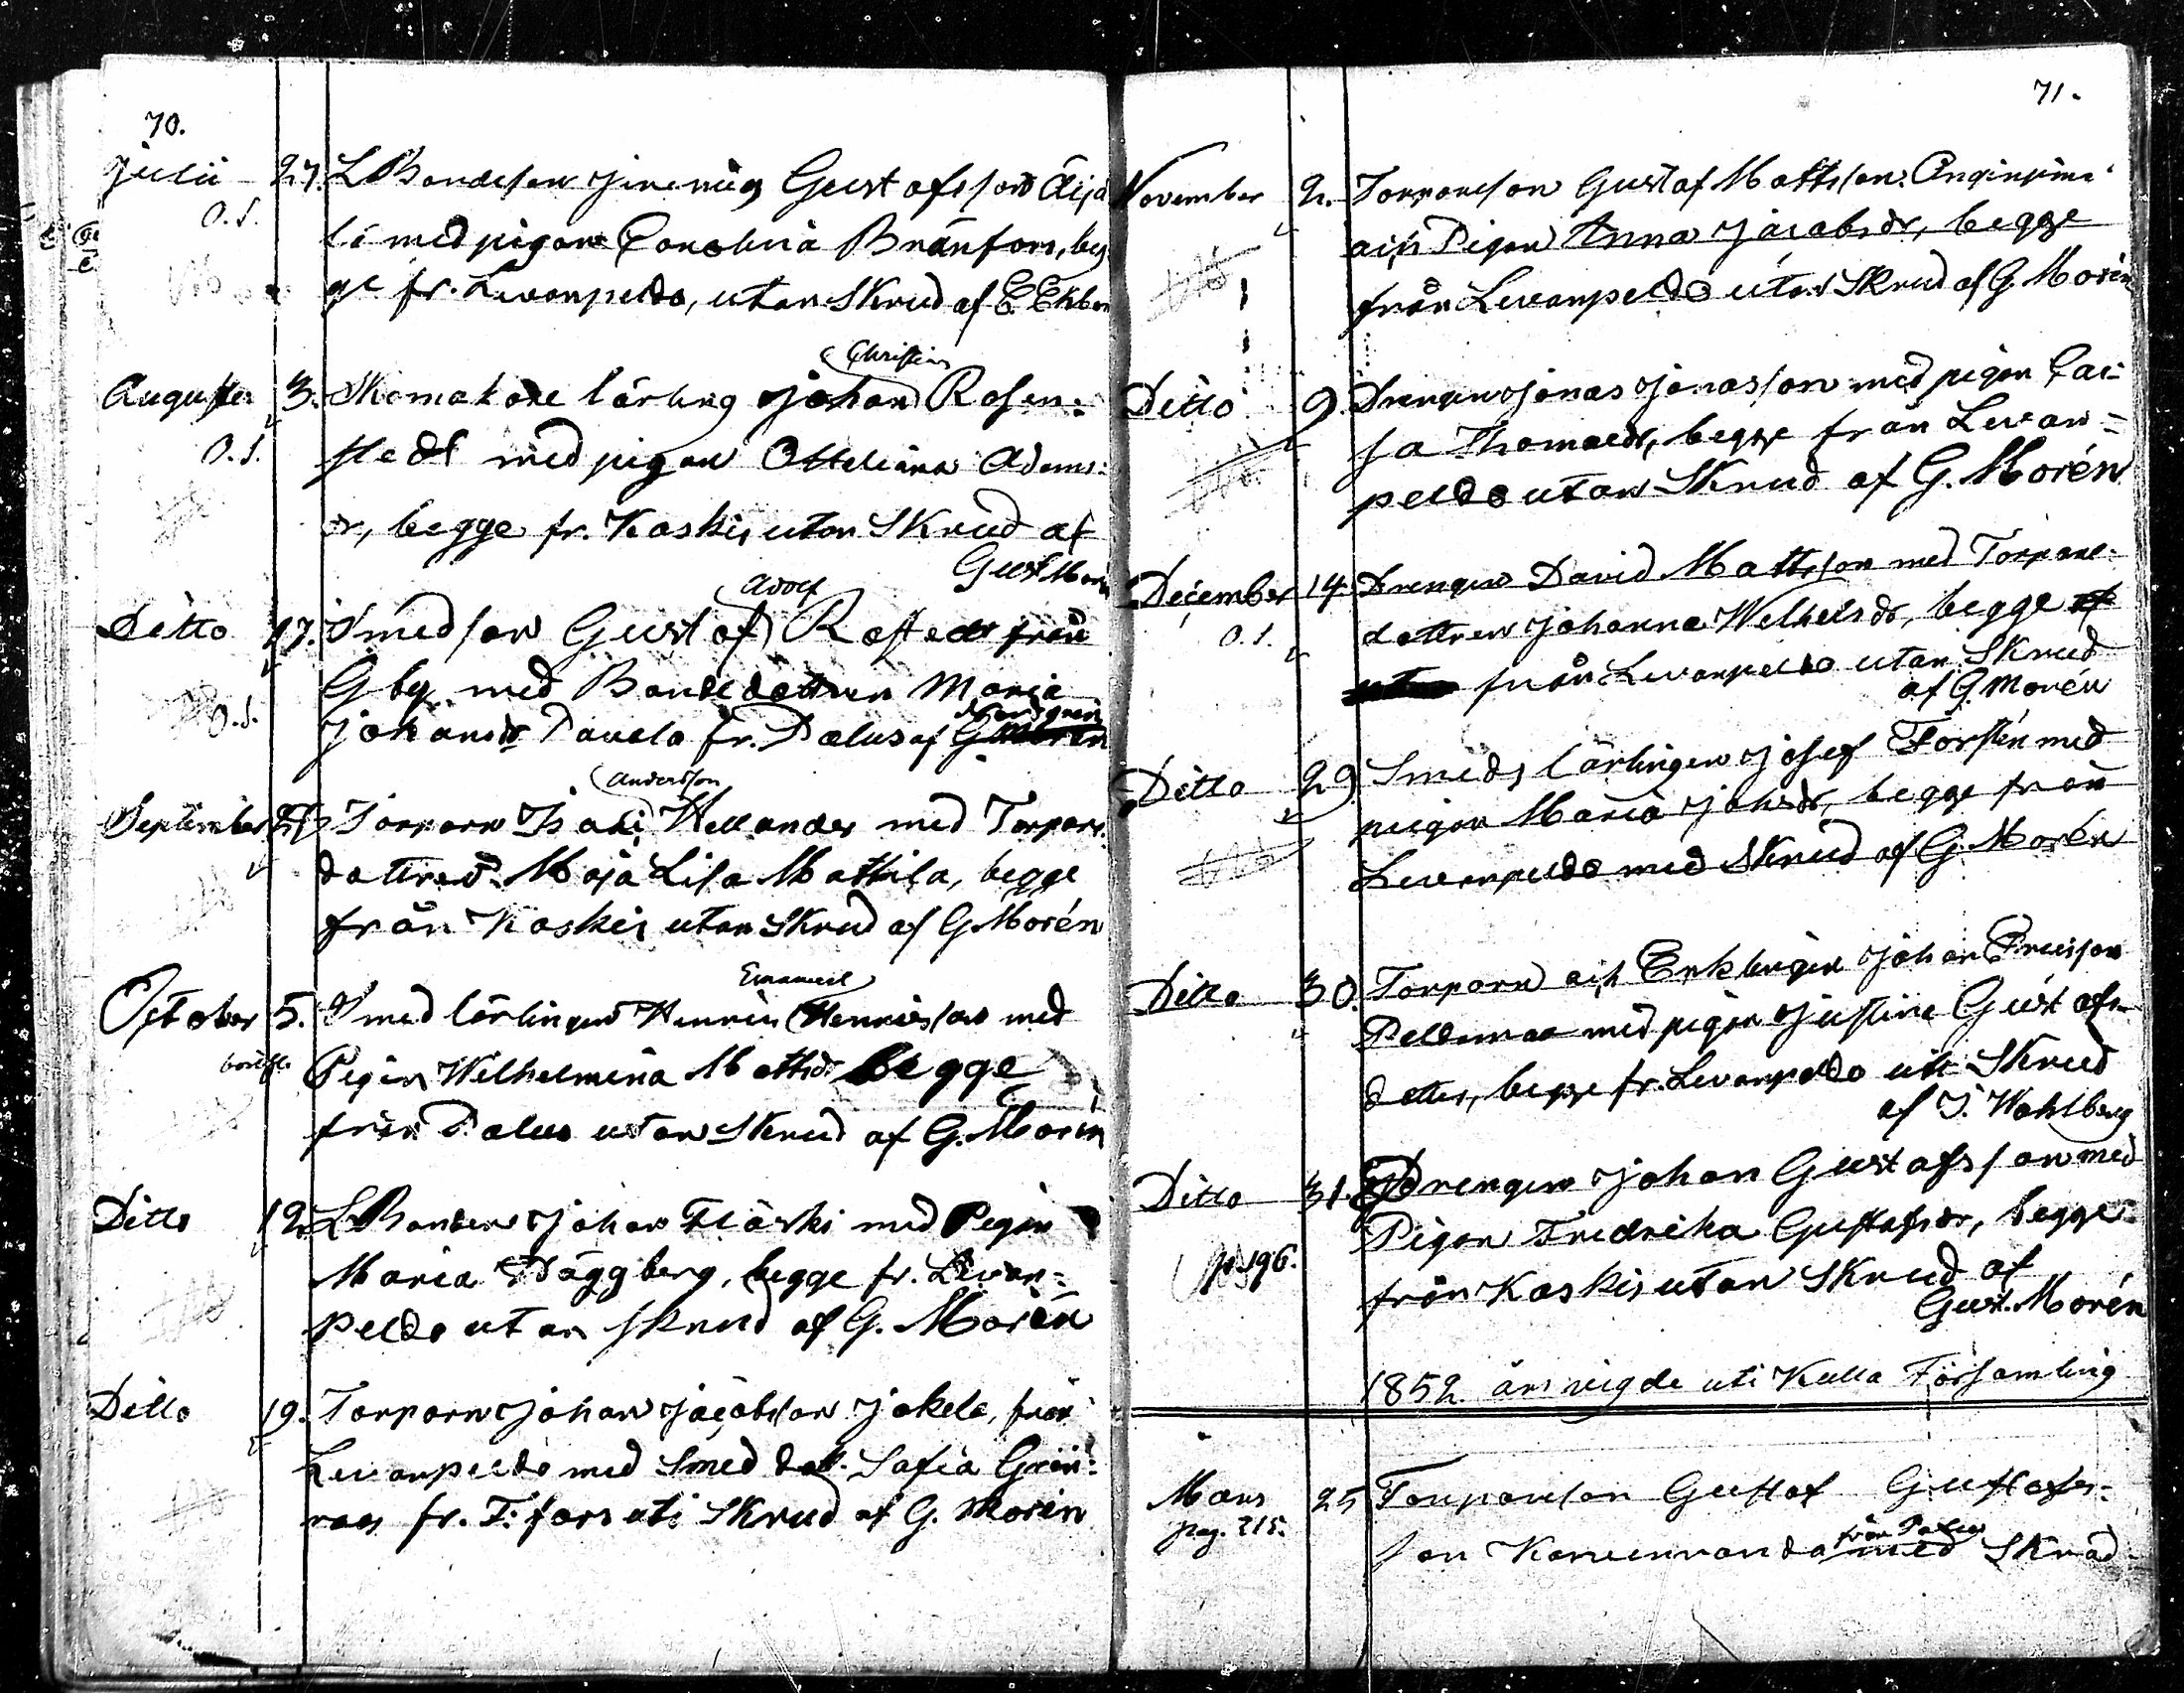 70.
Julii 27. L Bondeson Jeremias Gustafsson Äijä
O.S.
lä med pigan Carolina Bränfors, beg
ge fr. Lewanpeldo, utan Skrud af E Ekbon
Christian
Augusti 3. Skomakare lärling Johan Rosen:
O.S. stedt med pigan Otteliana Adams:
dr, begge fr. Koskis utan Skrud af
Gust Morén
Adolf
Ditto 17. Smedson Gustaf Rostedt från
Gby med Bondedottren Maria
O.S. Johansdr Pavola fr. Palus af G Morén
Andersson
September 27 Torparn Isak Hellander med Torpare
dottren Maja Lisa Mattila, begge
från Koskis utan Skrud af G Morén
Emanuel
October 5. Smed lärlingen Henric Henricsson med
Pigan Wilhelmina Mattsdr begge
från Palus utan Skrud af G. Morén
Ditto 12. L Bonden Johan Fläski med Pigan
Maria Häggberg, begge fr. Lewan=
peldo utan skrud af G. Morén
Ditto 19. Torparn Johan Jacobsson Jokela, från
Lewanpeldo med Smed dott. Safia Grön:
roos fr. F: fors uti Skrud af G. Morén
71.
November 2. Torpareson Gustaf Mattsson Anginjima
ach Pigan Anna Jacobsdr, begge
från Lewanpeldo utan Skrud af G. Morén
Ditto 9. Drengen Jonas Jonasson med pigan Cai:
sa Thomasdr, begge från Lewan=
peldo utan Skrud af G. Morén
December 14. Drengen David Mattsson med Torpare-
O.S. dottren Johanna Wilhelsdr, begge af
från Lewanpeldo utan Skrud
af G. Morén
Ditto 29. Smeds lärlingen Josef Forstén med
pigan Maria Johsdr, begge från
Lewanpeldo med Skrud af G. Morén
Ditto 30. Torparn ach Enklingen Johan Ericsson
Peldomaa med pigan Justina Gustafs-
dotter, begge fr. Lewanpeldo uti Skrud
af J. Wahlberg
Ditto 31. Drengen Johan Gustafsson med
Pigan Fredrika Gustafsdr, begge
p. 196. från Koskis utan Skrud af
Gust. Morén
1852 års vigde uti Kulla Församling
Mars 25 Torpareson Gustaf Gustafs=
från Palus
pag. 215. son Korvenranda med Skrud